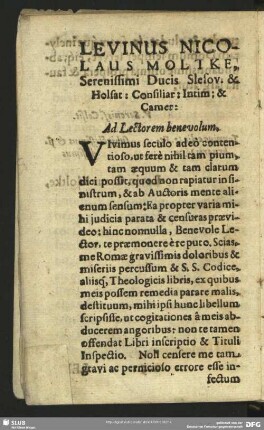 LEVINUS NICO-
LAUS MOLTKE,
Serenissimi Ducis Slesov. &
Holsat: Consiliar: Intim; &
Camer:
Ad Lectorem benevolum.
VIvimus seculo adeò conten-
tioso, ut ferè nihil tam pium,
tam æquum & tam clarum
dici possit, quod non rapiatur in si-
nistrum, & ab Auctoris mente ali-
enum sensum: Ea propter varia mi-
hi judicia parata & censuras prævi-
deo; hinc nonnulla, Benevole Le-
ctor, te præmonere è re puto. Scias,
me Romæ gravissimis doloribus &
miseriis percussum & S. S. Codice,
aliisq, Theologicis libris, ex quibus
meis possem remedia parare malis,
destitutum, mihi ipsi hunc libellum
scripsisse, ut cogitationes à meis ab-
ducerem angoribus: non te tamen
offendat Libri inscriptio & Tituli
Inspectio. Noli censere me tam
gravi ac pernicioso errore esse in-
fectum
SLUB
DFG